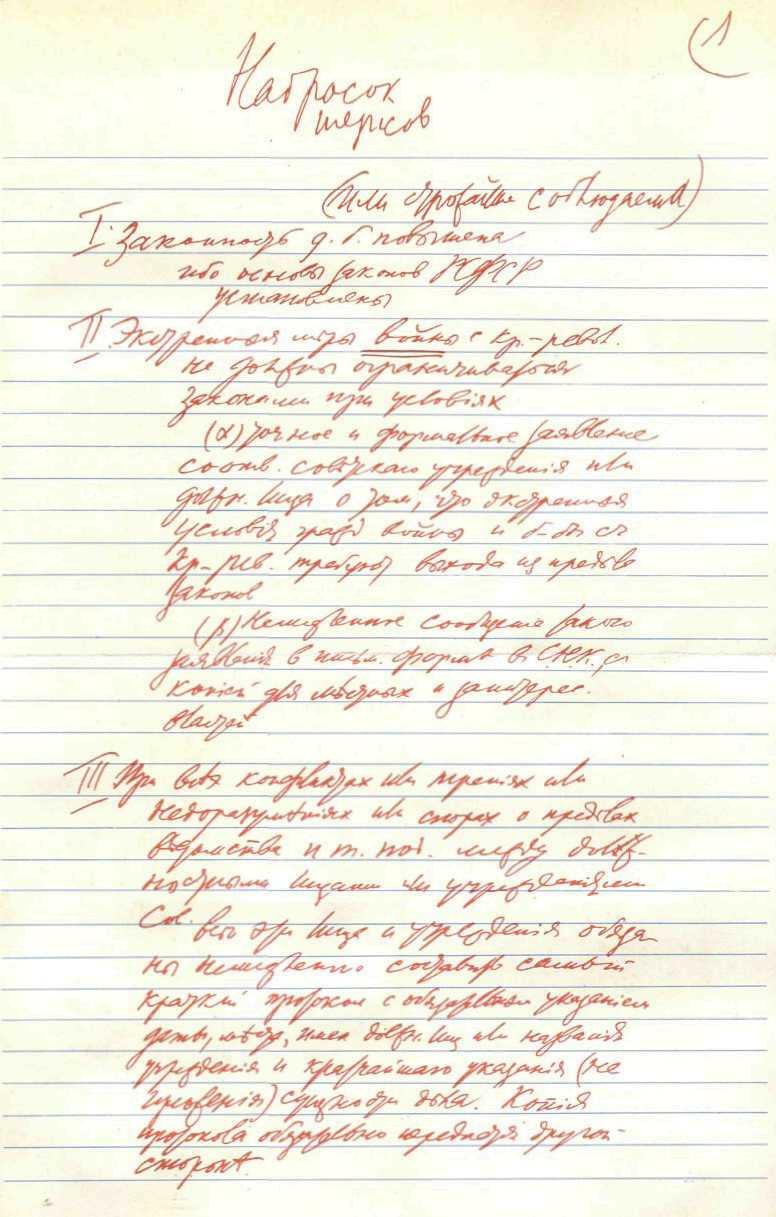 1
Набросок
тезисов
(или строжайше соблюдаема)
I. Законность д. б. повышена
ибо основы законов РСФСР
установлены
II. Экстренныя меры войны с к.-рев.
не должны ограничиваться
законами при условіях
(α) точное и формальное заявление
соотв. советскаго учрежденія или
должн. лица о том, что экстренныя
условія гражд войны и б-бы съ
к.-рев. требуют выхода из пределов
законов
(β) Немедленное сообщение такого
заявленія в письм. форме в С.Н.К., съ
копіей для местных и заинтерес.
властей
III При всех конфликтах или треніях или
недоразуменіях или спорах о пределах
ведомства и т. под. между долж-
ностными лицами или учрежденіями
Сов. все эти лица и учрежденія обяза
ны немедленно составить самый
краткій протокол с обязательным указаніем
даты, места, имен должн. лиц или названія
учрежденія и кратчайшаго указанія (не
изложенія) сущности дела. Копія
протокола обязательно передается другой
стороне.